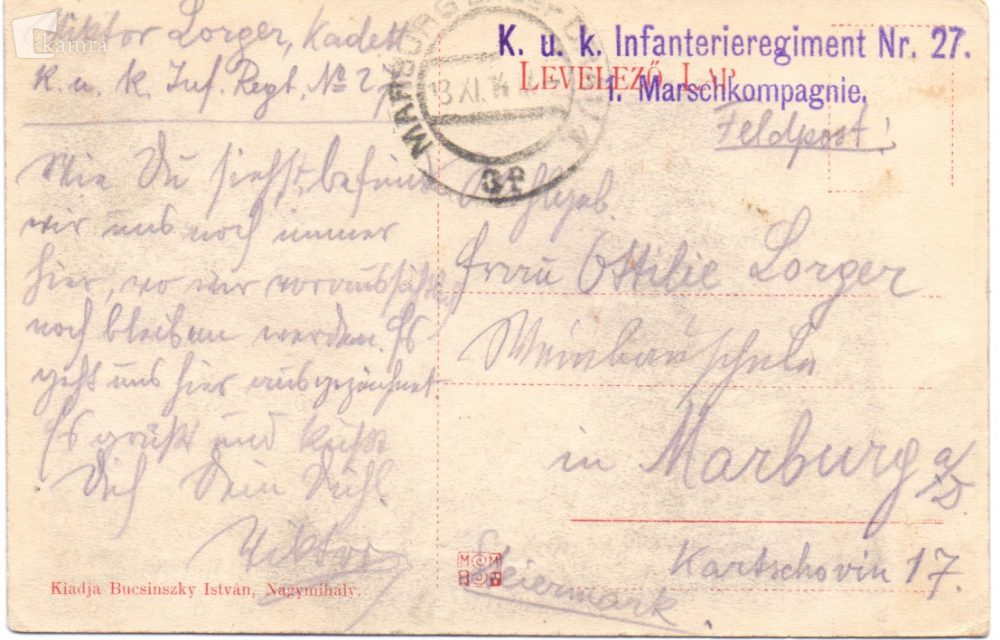 kamra
Viktor Lorger, Kadett
K. u. k. Inf. Regt, № 27
Wie Du siehst, befinden
wir uns noch immer
hier, wo wir voraussichtlich
noch bleiben werden. Es
geht uns hier ausgezeichnet.
Es grüßt und küßt
Dich Dein
Viktor
Kiadja Bucsinszky István, Nagymihály.
MARBURG
13 XI. 14
K. u. k. Infanterieregiment Nr. 27.
LEVELEZŐ LAP
1. Marschkompagnie.
Feldpost!
Frau Ottilie Lorger
Weinbauschule
in Marburg a/D
Kartschovin 17.
Steiermark